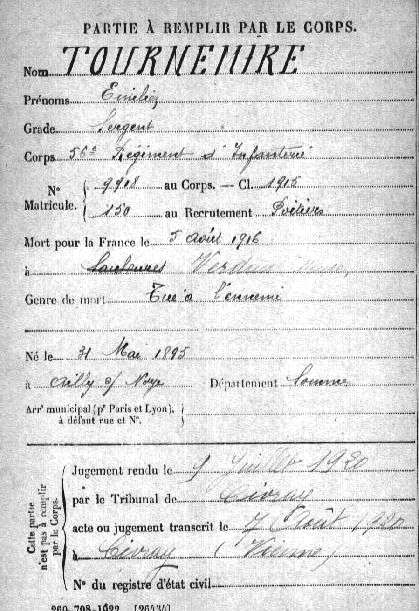 PARTIE À REMPLIR PAR LE CORPS.
Nom TOURNEMIRE
Prénoms Emilien
Grade Sergent
Corps 56e Régiment d'Infanterie
N° Matricule. { 9918 au Corps. — Cl. 1915
150 au Recrutement Poitiers
Mort pour la France le 5 avril 1916
à Verdun
Genre de mort Tué à l'ennemi
Né le 31 Mai 1895
à Ailly s/ Noye Département Somme
Arrt municipal (pr Paris et Lyon),
à défaut rue et N°.
Cette partie n'est pas à remplir par le Corps.
Jugement rendu le 9 Juillet 1920
par le Tribunal de Civray
acte ou jugement transcrit le 7 Août 1920
à Civray (Vienne)
N° du registre d'état civil